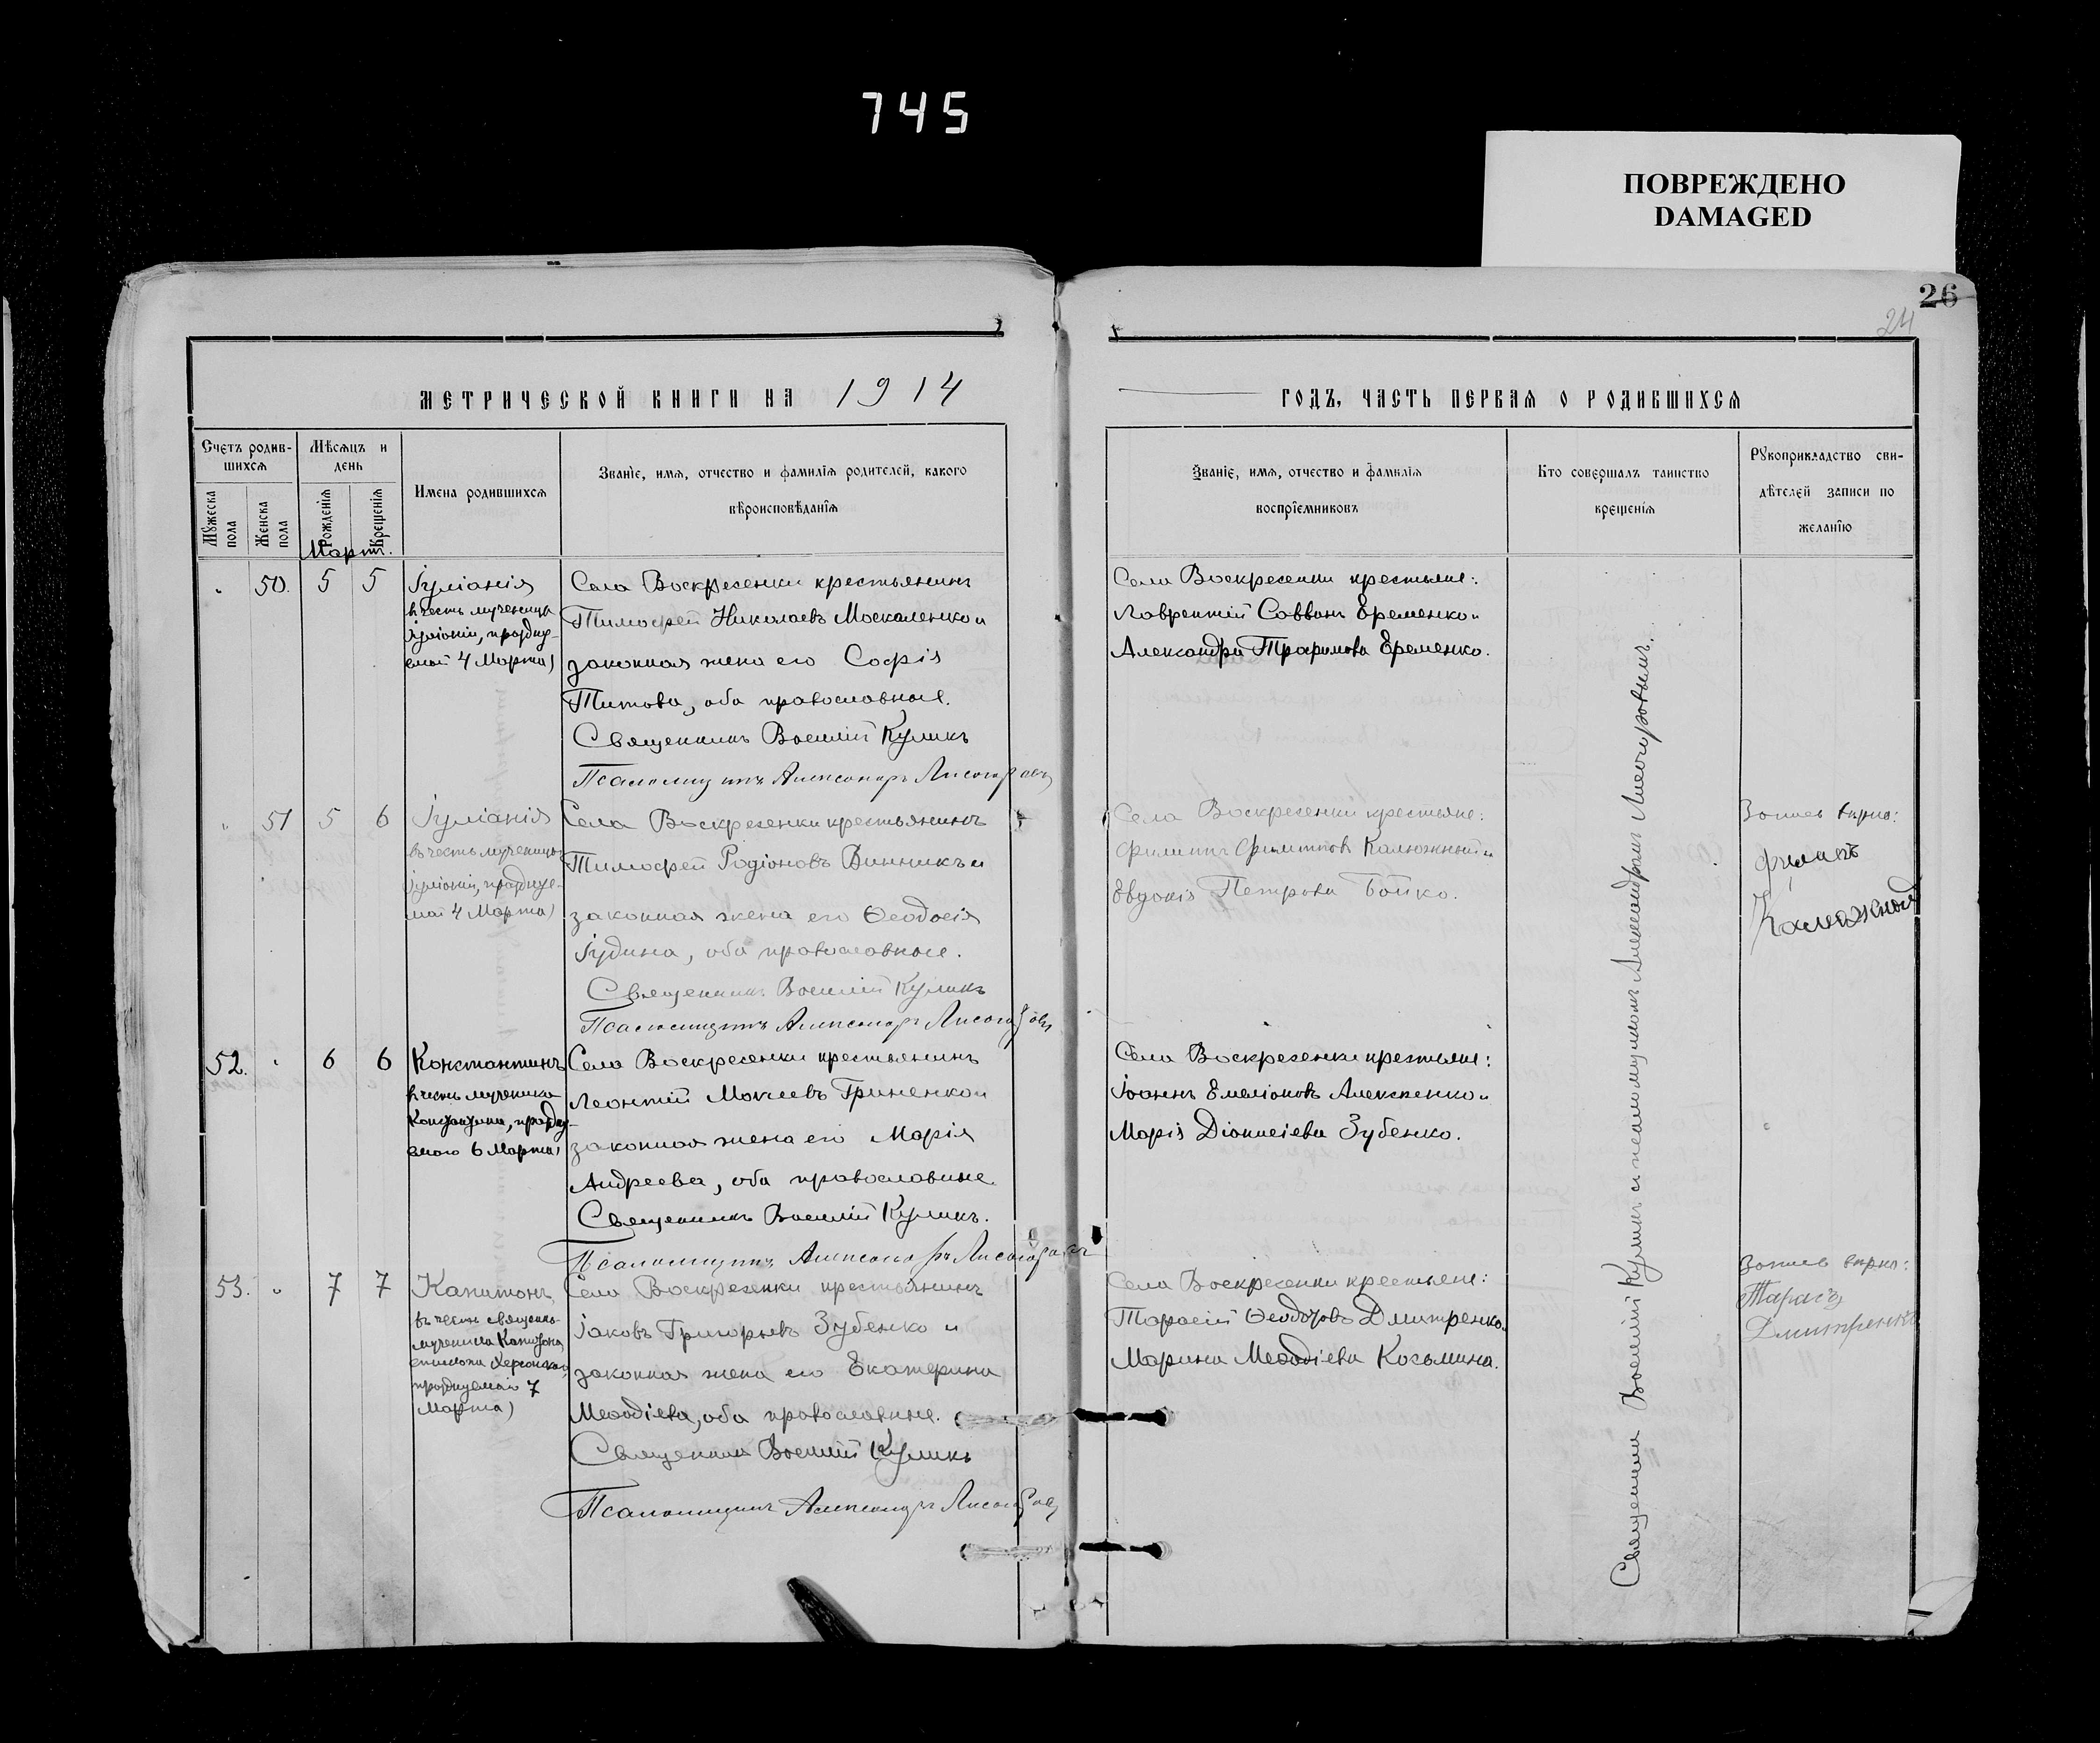 745
ПОВРЕЖДЕНО
DAMAGED
26
24
МЕТРИЧЕСКОЙ КНИГИ НА 1914
Счетъ родив-
шихся
Мѣсяцъ и
день
Мужеска
пола
Женска
пола
Рожденія
Крещенія
Имена родившихся
Званіе, имя, отчество и фамилія родителей, какого
вѣроисповѣданія
Мартъ.
50. 5 5
Іуліанія
въ честь мученицы
Іуліаніи, праздну-
емой 4 Марта)
Села Воскресенки крестьянинъ
Тимофей Николаевъ Москаленко и
законная жена его Софія
Титова, оба православные.
Священникъ Василій Куликъ
Псаломщикъ Александръ Лисогоровъ
51 5 6
Іуліанія
въ честь мученицы
Іуліаніи, празднуе-
мой 4 Марта)
Села Воскресенки крестьянинъ
Тимофей Родіоновъ Винникъ и
законная жена его Ѳеодосія
Іудина, оба православные.
Священникъ Василій Куликъ
Псаломщикъ Александръ Лисогоровъ
52. 6 6
Константинъ
въ честь мученика
Константина, праздну-
емаго 6 Марта)
Села Воскресенки крестьянинъ
Леонтій Мокіевъ Гриненко и
законная жена его Марія
Андреева, оба православные.
Священникъ Василій Куликъ.
Псаломщикъ Александръ Лисогоровъ
53. 7 7
Капитонъ
въ честь священно-
мученика Капитона,
епископа Херсонскаго,
празднуемаго 7
Марта)
Села Воскресенки крестьянинъ
Іаковъ Григорьевъ Зубенко и
законная жена его Екатерина
Меѳодіева, оба православные.
Священникъ Василій Куликъ
Псаломщикъ Александръ Лисогоровъ
ГОДЪ, ЧАСТЬ ПЕРВАЯ О РОДИВШИХСЯ
Званіе, имя, отчество и фамилія
воспріемниковъ
Кто совершалъ таинство
крещенія
Рукоприкладство сви-
дѣтелей записи по
желанію
Села Воскресенки крестьяне:
Лаврентій Саввинъ Еременко и
Александра Трафимова Еременко.
Села Воскресенки крестьяне:
Филиппъ Филипповъ Калюжный и
Евдокія Петрова Бойко.
Запись вѣрна:
Калюжной
Села Воскресенки крестьяне:
Іоаннъ Емеліановъ Алексеенко и
Марія Діонисіева Зубенко.
Села Воскресенки крестьяне:
Тарасій Ѳеодотовъ Дмитренко и
Марина Меѳодіева Козьмина.
Запись вѣрна:
Тарасъ
Дмитренко
Священникъ Василій Куликъ съ псаломщикомъ Александромъ Лисогоровымъ.